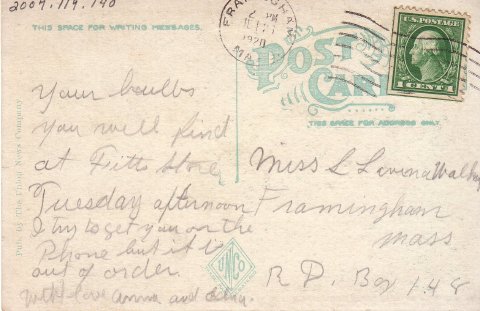 2009.119.140
THIS SPACE FOR WRITING MESSAGES.
FRAMINGHAM
2 PM
1920
MA
U.S. POSTAGE
1 CENT 1
POST CARD
THIS SPACE FOR ADDRESS ONLY.
Pub. by The Union News Company
Your boulbs
you will find
at Fitts Store
Tuesday afternoon
I try to get you on the
Phone but it is
out of order.
with love Anna and
UNCO
Miss L Lavina
Framingham
Mass
R D. Box 148